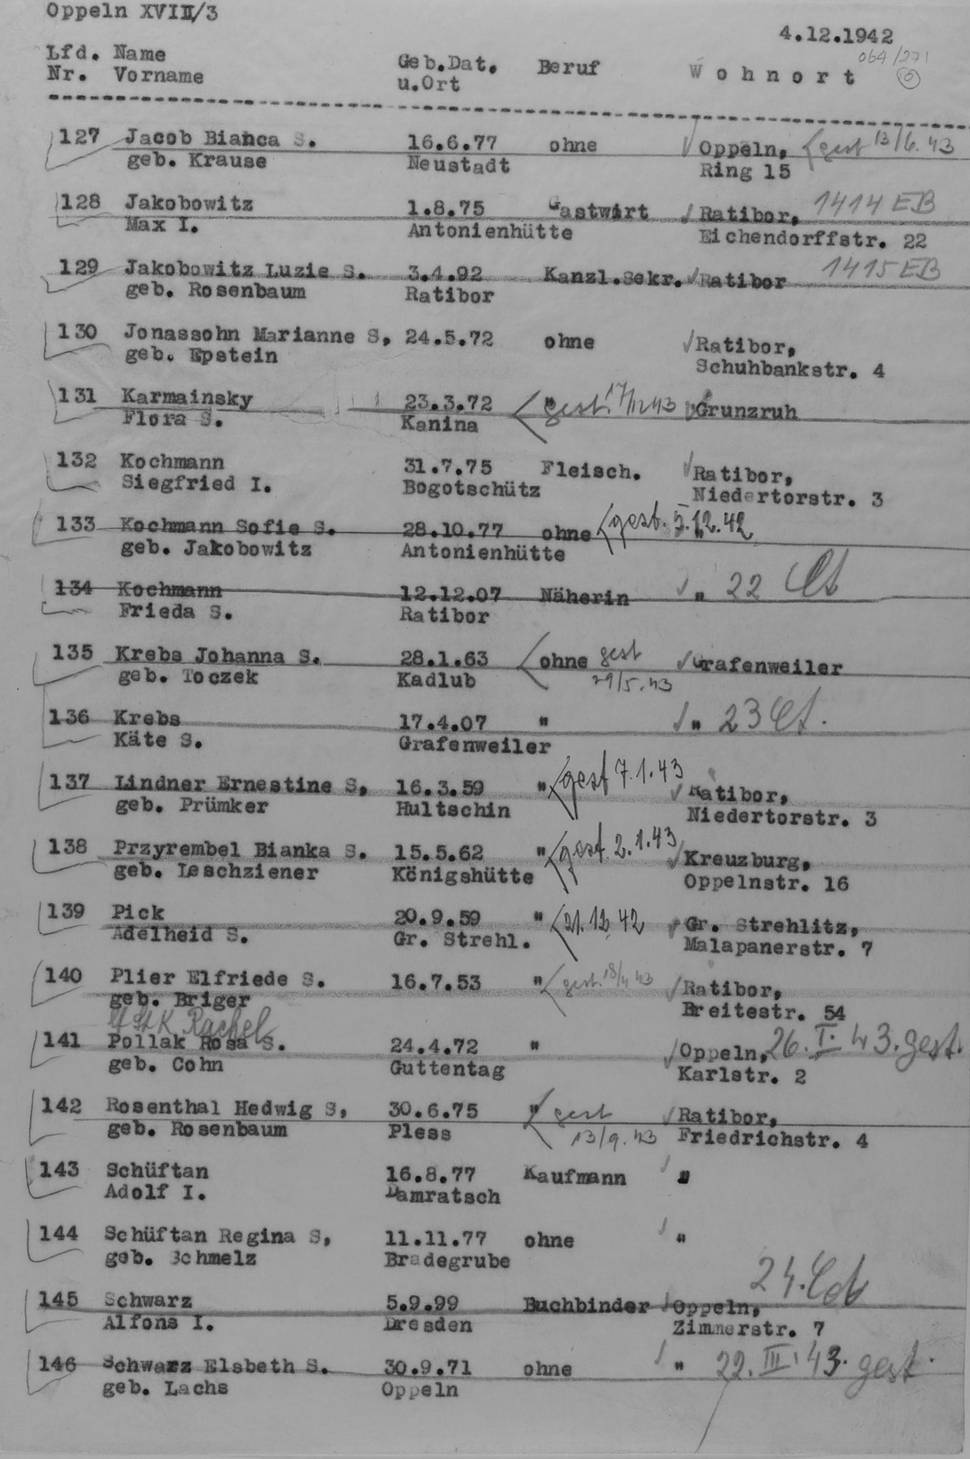 Oppeln XVIII/3
4.12.1942
064/271
Lfd. Name Geb.Dat. Beruf W o h n o r t
Nr. Vorname u.Ort
127 Jacob Bianca S. 16.6.77 ohne Oppeln, gest 13/6.43
geb. Krause Neustadt Ring 15
128 Jakobowitz 1.8.75 Gastwirt Ratibor, 1414 EB
Max I. Antonienhütte Eichendorffstr. 22
129 Jakobowitz Luzie S. 3.4.92 Kanzl.Sekr. Ratibor 1415 EB
geb. Rosenbaum Ratibor
130 Jonassohn Marianne S, 24.5.72 ohne Ratibor,
geb. Epstein Schuhbankstr. 4
131 Karmainsky 23.3.72 " gest. Grunzruh
Flora S. Kanina
132 Kochmann 31.7.75 Fleisch. Ratibor,
Siegfried I. Bogotschütz Niedertorstr. 3
133 Kochmann Sofie S. 28.10.77 ohne gest. 5.12.42
geb. Jakobowitz Antonienhütte
134 Kochmann 12.12.07 Näherin " 22
Frieda S. Ratibor
135 Krebs Johanna S. 28.1.63 ohne gest Grafenweiler
geb. Toczek Kadlub 29/5.43
136 Krebs 17.4.07 " " 23
Käte S. Grafenweiler
137 Lindner Ernestine S, 16.3.59 " gest 7.1.43 Ratibor,
geb. Prümker Hultschin Niedertorstr. 3
138 Przyrembel Bianka S. 15.5.62 " gest. 2.1.43 Kreuzburg,
geb. Leschziener Königshütte Oppelnstr. 16
139 Pick 20.9.59 " 21.12.42 Gr. Strehlitz,
Adelheid S. Gr. Strehl. Malapanerstr. 7
140 Plier Elfriede S. 16.7.53 " gest. Ratibor,
geb. Briger Breitestr. 54
Rachel
141 Pollak Rosa S. 24.4.72 " Oppeln, 26.I.43.gest.
geb. Cohn Guttentag Karlstr. 2
142 Rosenthal Hedwig S, 30.6.75 " gest Ratibor,
geb. Rosenbaum Pless 13/9.43 Friedrichstr. 4
143 Schüftan 16.8.77 Kaufmann "
Adolf I. Damratsch
144 Schüftan Regina S, 11.11.77 ohne "
geb. Schmelz Bradegrube
24.
145 Schwarz 5.9.99 Buchbinder Oppeln,
Alfons I. Dresden Zimmerstr. 7
146 Schwarz Elsbeth S. 30.9.71 ohne " 22.III.43.gest.
geb. Lachs Oppeln